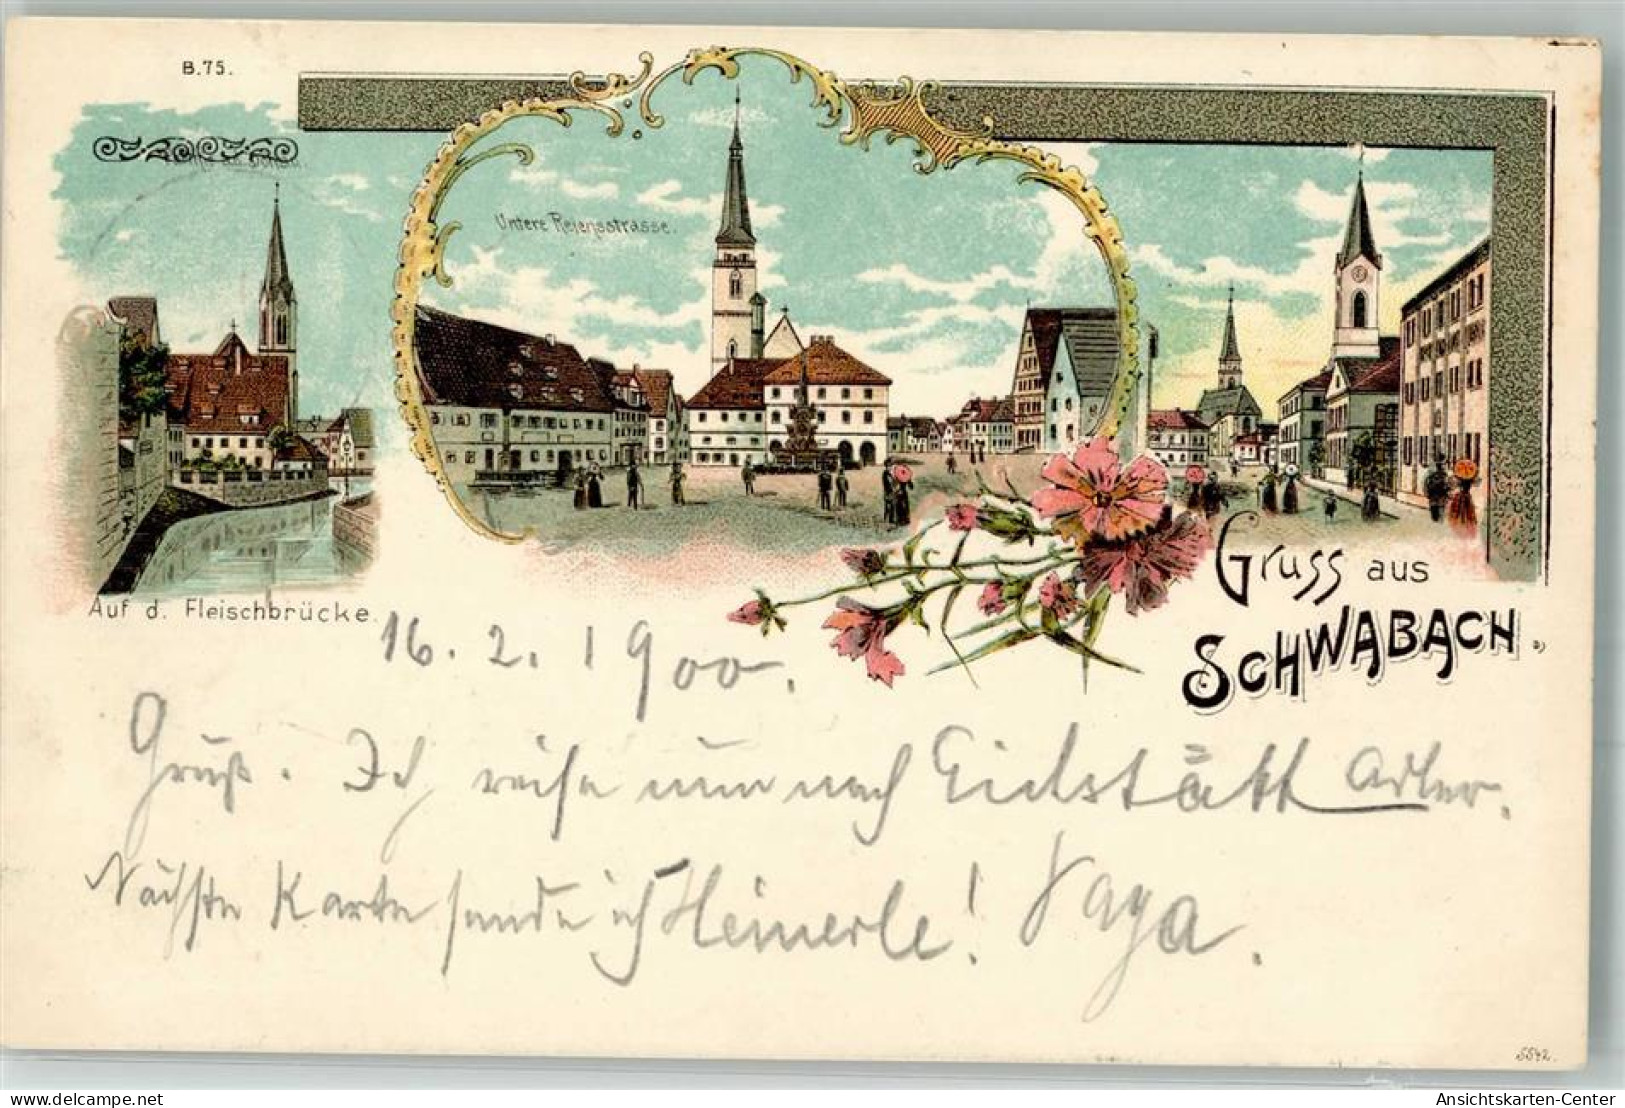 B.75.
Untere Reiensstrasse.
Auf d. Fleischbrücke.
Gruss aus
SCHWABACH
16. 2. 1900.
Gruß. Ich reise nun nach Eichstätt Adler.
Nächste Karte sende ich Heinerle! Papa.
5542.
www.delcampe.net
Ansichtskarten-Center